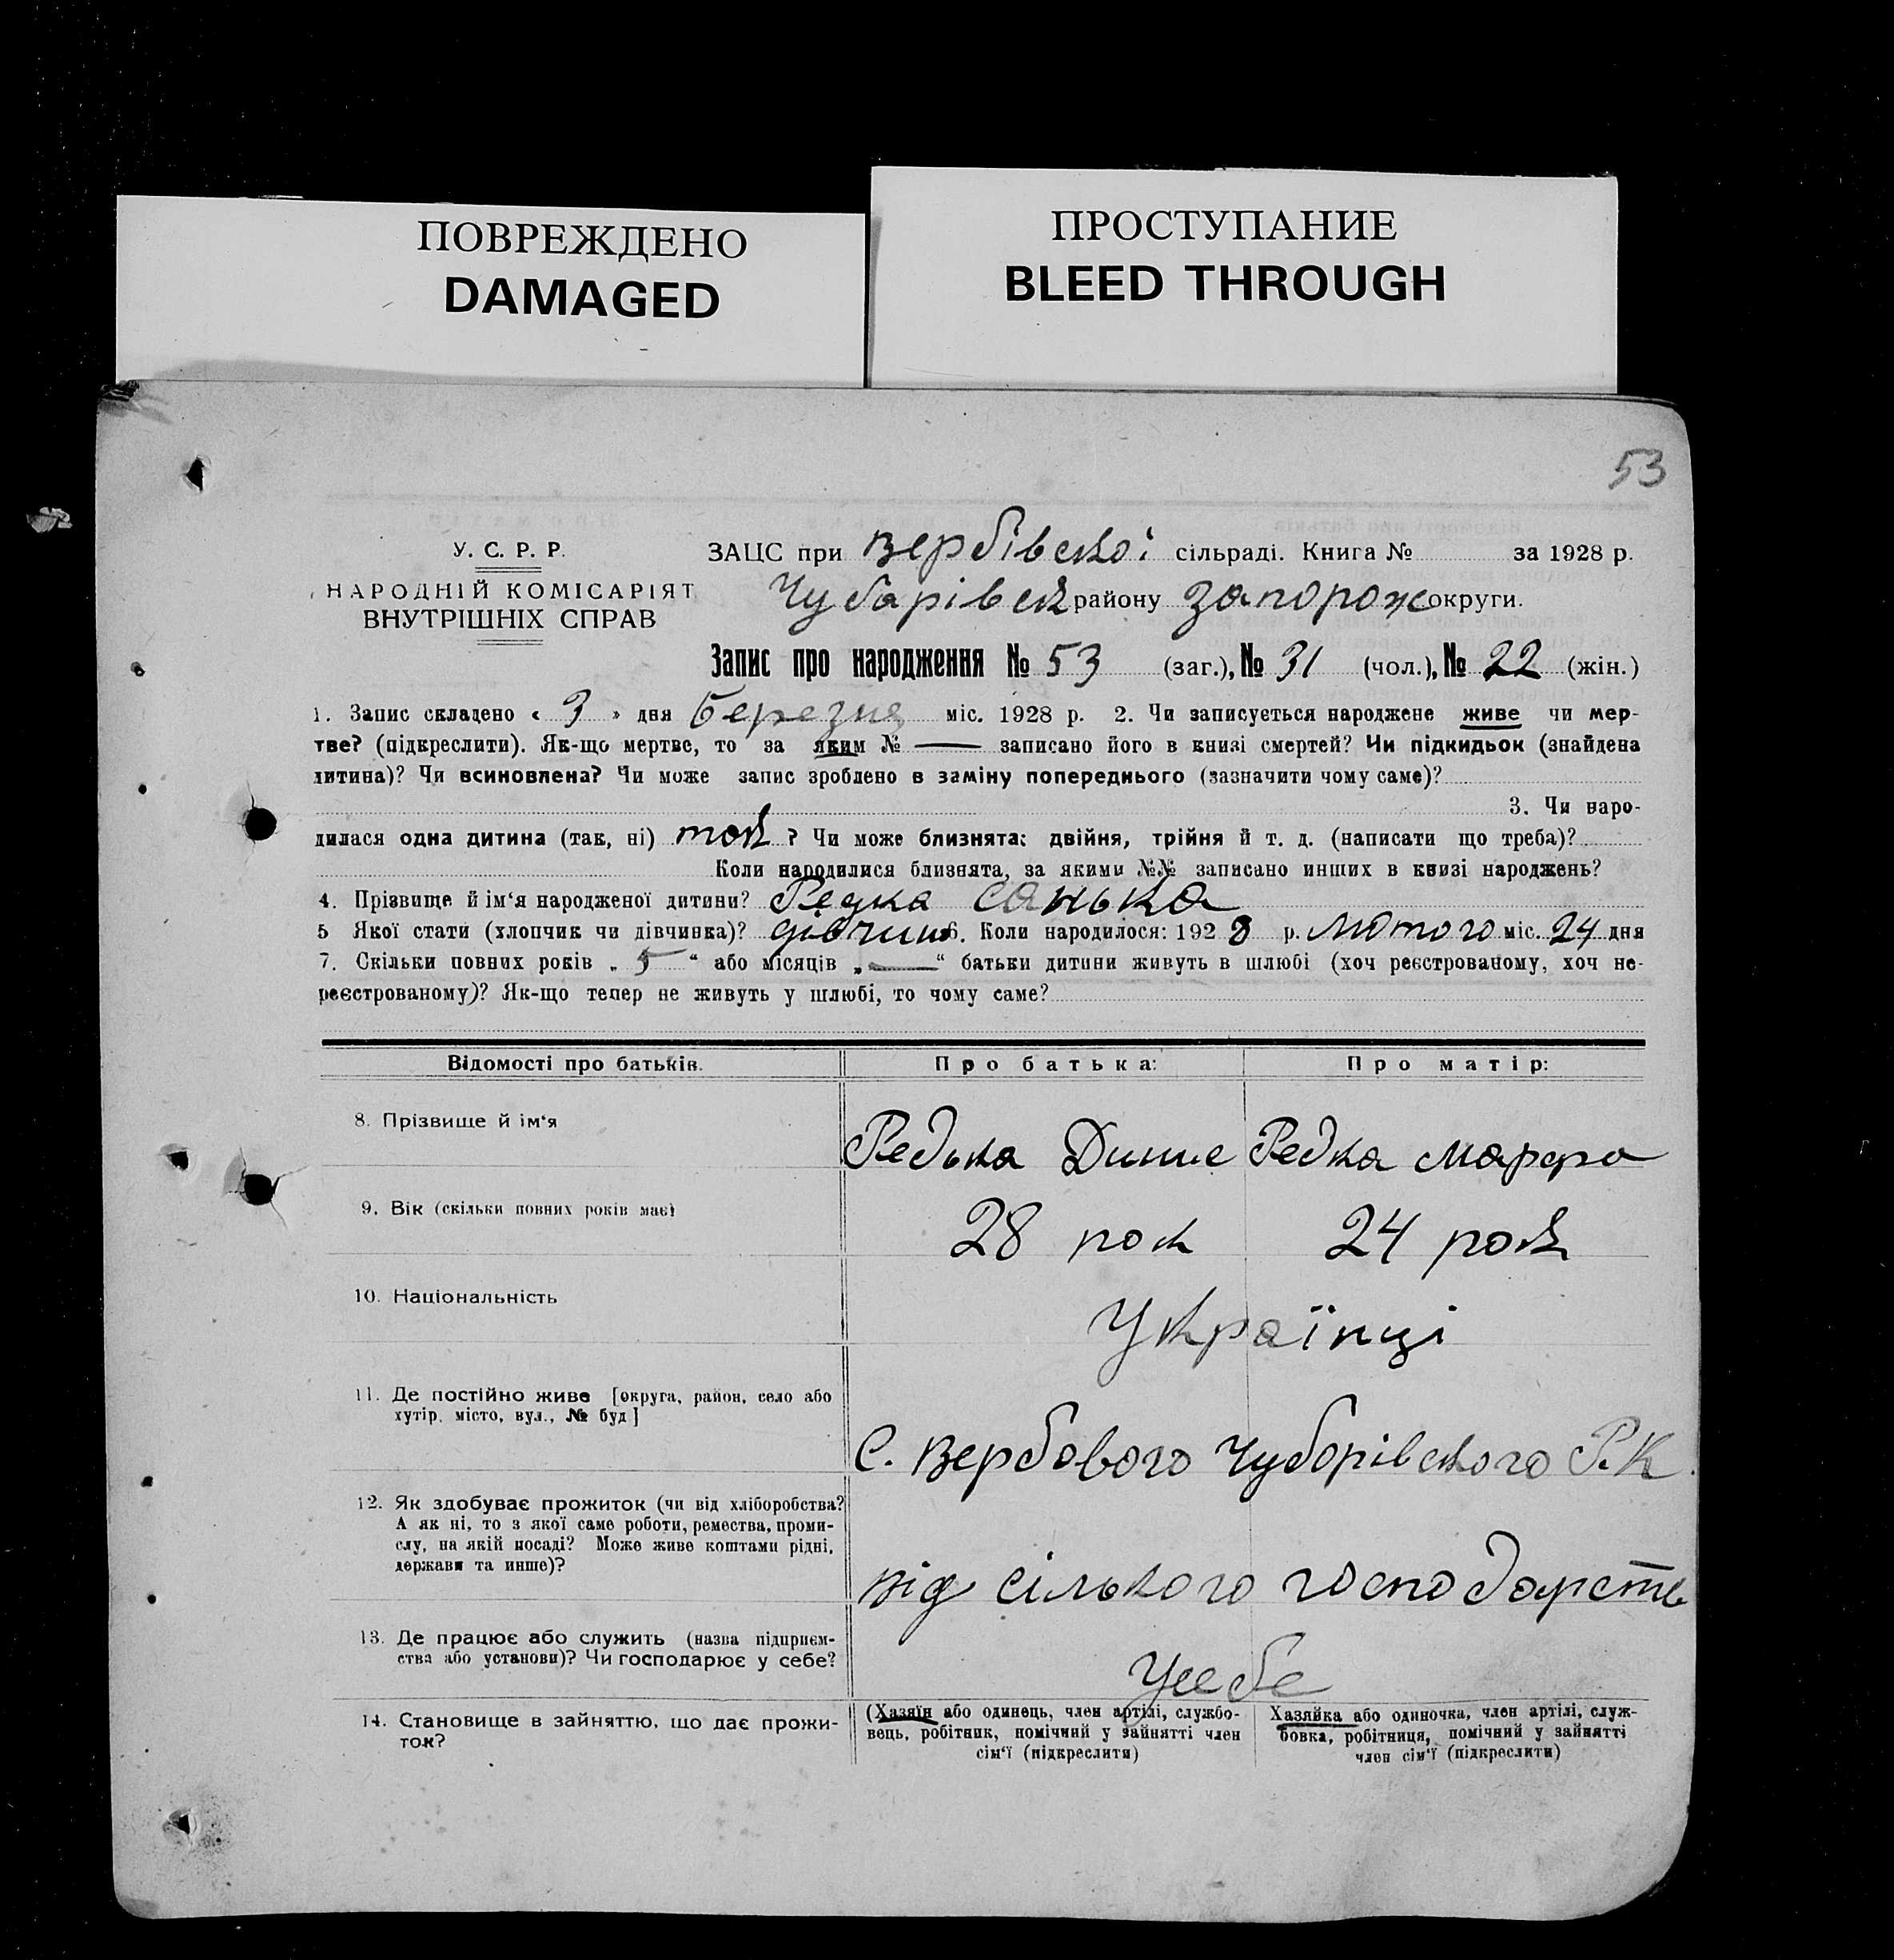 ПОВРЕЖДЕНО
DAMAGED
ПРОСТУПАНИЕ
BLEED THROUGH
53
У. С. Р. Р.
НАРОДНІЙ КОМІСАРІЯТ
ВНУТРІШНІХ СПРАВ
ЗАЦС при Вербівської сільраді. Книга № за 1928 р.
Чубарівськ району Запорож округи.
Запис про народження № 53 (заг.), № 31 (чол.), № 22 (жін.)
1. Запис складено « 3 » дня Березня міс. 1928 р. 2. Чи записується народжене живе чи мер-
тве? (підкреслити). Як-що мертве, то за яким № — записано його в книзі смертей? Чи підкидьок (знайдена
дитина)? Чи всиновлена? Чи може запис зроблено в заміну попереднього (зазначити чому саме)?
3. Чи наро-
дилася одна дитина (так, ні) так ? Чи може близнята: двійня, трійня й т. д. (написати що треба)?
Коли народилися близнята, за якими №№ записано инших в книзі народжень?
4. Прізвище й ім‘я народженої дитини? Редка Санька
5 Якої стати (хлопчик чи дівчинка)? дівчин 6. Коли народилося: 1928 р. Лютого міс. 24 дня
7. Скільки повних років „ 5 “ або місяців „ — “ батьки дитини живуть в шлюбі (хоч реєстрованому, хоч не-
реєстрованому)? Як-що тепер не живуть у шлюбі, то чому саме?
Відомості про батьків. Про батька: Про матір:
8. Прізвище й ім‘я
Редька Редка Марфа
9. Вік (скільки повних років має)
28 рок 24 рок
10. Національність
Українці
11. Де постійно живе [округа, район, село або
хутір, місто, вул., № буд]
С. Вербового Чубарівського Р.К.
12. Як здобуває прожиток (чи від хліборобства?
А як ні, то з якої саме роботи, ремества, проми-
слу, на якій посаді? Може живе коштами рідні,
держави та инше)?
від сілького господарств
13. Де працює або служить (назва підприєм-
ства або установи)? Чи господарює у себе?
Усебе
14. Становище в зайняттю, що дає прожи-
ток?
(Хазяїн або одинець, член артілі, службо-
вець, робітник, помічний у зайнятті член
сім‘ї (підкреслити)
Хазяйка або одиночка, член артілі, служ-
бовка, робітниця, помічний у зайнятті
член сім‘ї (підкреслити)